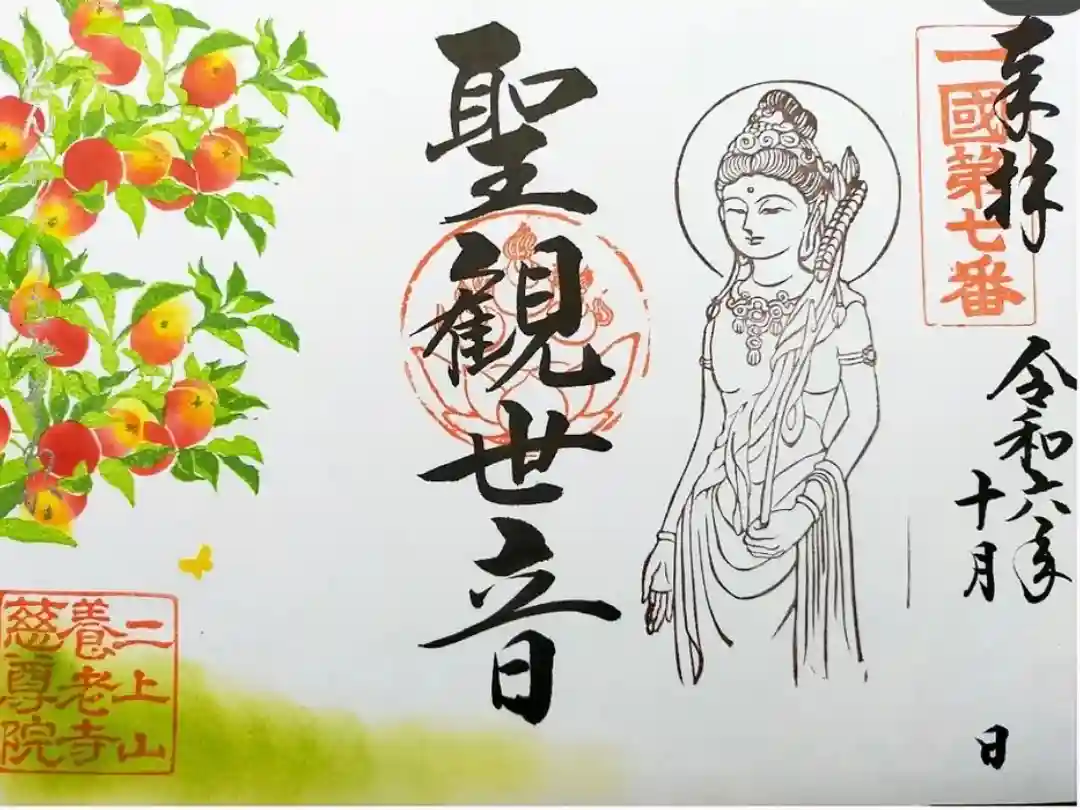 来拝
一國第七番
令和六年
十月
日
聖観世音
二上山
養老寺
慈尊院